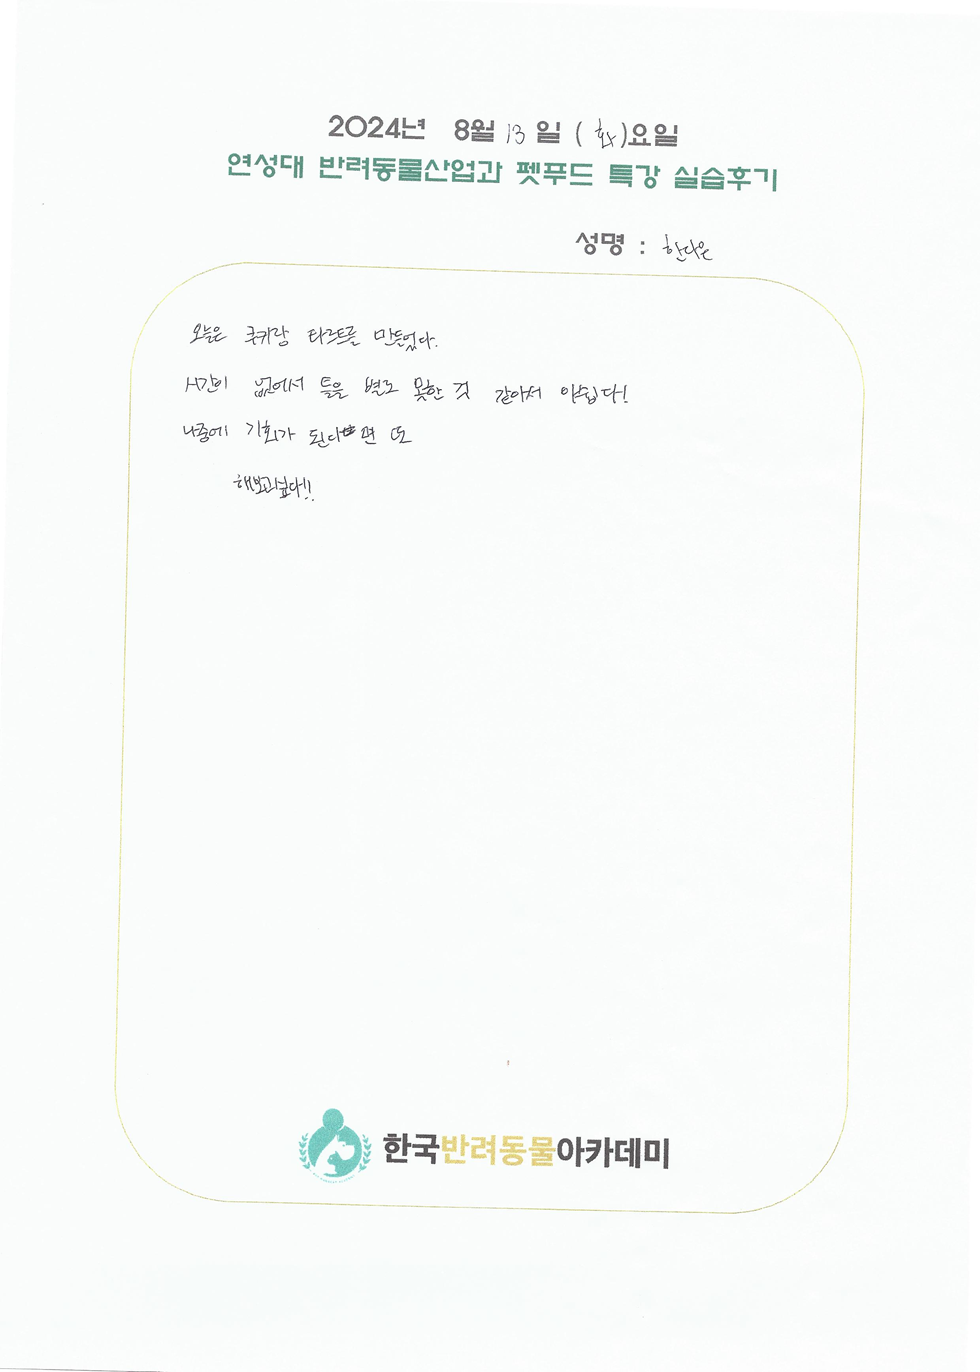 2024년 8월 13일 (화)요일
연성대 반려동물산업과 펫푸드 특강 실습후기
성명 : 한다은
오늘은 쿠키랑 타르트를 만들었다.
시간이 없어서 틀을 별로 못한 것 같아서 아쉽다!
나중에 기회가 된다면 또
해보고싶다!!
한국반려동물아카데미